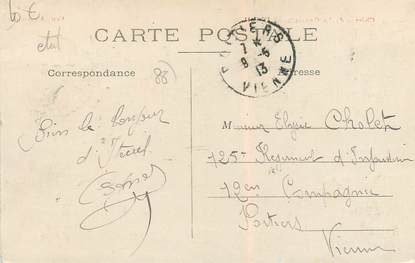 10 €
CARTE POSTALE
POITIERS
7
9-6
13
VIENNE
Correspondance
(88)
Adresse
Bien le bonjour
Monsieur Elysée Cholet
125e Régiment d'Infanterie
12em Compagnie
Poitiers
Vienne